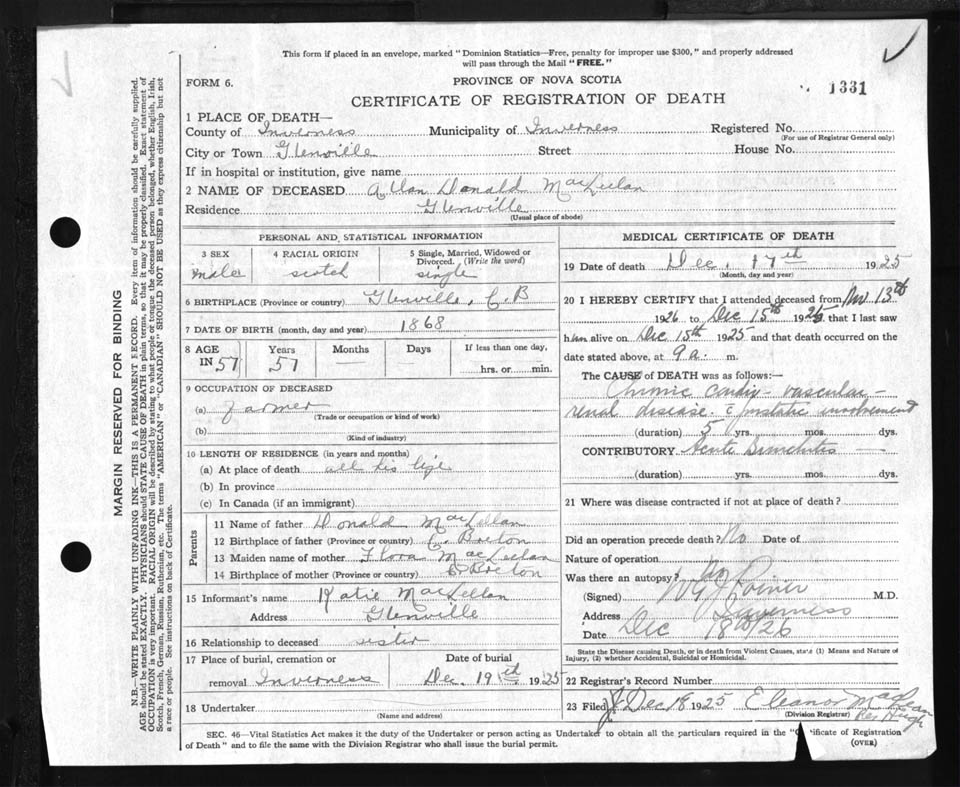 This form if placed in an envelope, marked "Dominion Statistics—Free, penalty for improper use $300," and properly addressed
will pass through the Mail "FREE."
FORM 6.
PROVINCE OF NOVA SCOTIA
1331
CERTIFICATE OF REGISTRATION OF DEATH
1 PLACE OF DEATH—
County of Inverness Municipality of Inverness Registered No.
(For use of Registrar General only)
City or Town Glenville Street House No.
If in hospital or institution, give name
2 NAME OF DECEASED Allan Donald MacLellan
Residence Glenville
(Usual place of abode)
PERSONAL AND STATISTICAL INFORMATION
3 SEX 4 RACIAL ORIGIN 5 Single, Married, Widowed or
Divorced. (Write the word)
male scotch single
6 BIRTHPLACE (Province or country) Glenville, C.B
7 DATE OF BIRTH (month, day and year) 1868
8 AGE Years Months Days If less than one day,
IN 57 57 — — hrs. or min.
9 OCCUPATION OF DECEASED
(a) farmer
(Trade or occupation or kind of work)
(b)
(Kind of industry)
10 LENGTH OF RESIDENCE (in years and months)
(a) At place of death all his life
(b) In province
(c) In Canada (if an immigrant)
Parents
11 Name of father Donald MacLellan
12 Birthplace of father (Province or country) C. Breton
13 Maiden name of mother Flora MacLellan
14 Birthplace of mother (Province or country) C. Breton
15 Informant's name Katie MacLellan
Address Glenville
16 Relationship to deceased sister
17 Place of burial, cremation or Date of burial
removal Inverness Dec. 19th 1925
18 Undertaker
(Name and address)
MEDICAL CERTIFICATE OF DEATH
19 Date of death Dec. 17th 1925
(Month, day and year)
20 I HEREBY CERTIFY that I attended deceased from Nov 13th
1926 to Dec 15th 1926 that I last saw
him alive on Dec 15th 1925 and that death occurred on the
date stated above, at 9 a. m.
The CAUSE of DEATH was as follows:—
Chronic cardio-vascular-
renal disease. c prostatic involvement
(duration) 5 yrs. mos. dys.
CONTRIBUTORY Acute —
(duration) yrs. mos. dys.
21 Where was disease contracted if not at place of death?
Did an operation precede death? No Date of
Nature of operation
Was there an autopsy? No
(Signed) M.D.
Address Inverness
Date Dec 18th/26
State the Disease causing Death, or in death from Violent Causes, state (1) Means and Nature of
Injury, (2) whether Accidental, Suicidal or Homicidal.
22 Registrar's Record Number
23 Filed Dec 18 1925 Eleanor MacLean
(Division Registrar) Per Hugh
SEC. 46—Vital Statistics Act makes it the duty of the Undertaker or person acting as Undertaker to obtain all the particulars required in the "Certificate of Registration
of Death" and to file the same with the Division Registrar who shall issue the burial permit.
(OVER)
MARGIN RESERVED FOR BINDING
N.B.—WRITE PLAINLY WITH UNFADING INK—THIS IS A PERMANENT RECORD. Every item of information should be carefully supplied.
AGE should be stated EXACTLY. PHYSICIANS should STATE CAUSE OF DEATH in plain terms, so that it may be properly classified. Exact statement of
OCCUPATION is very important. RACIAL ORIGIN will be described by stating to what people or tongue the deceased person belonged, whether English, Irish,
Scotch, French, German, Russian, Ruthenian, etc. The terms "AMERICAN" or "CANADIAN" SHOULD NOT BE USED as they express citizenship but not
a race or people. See instructions on back of Certificate.